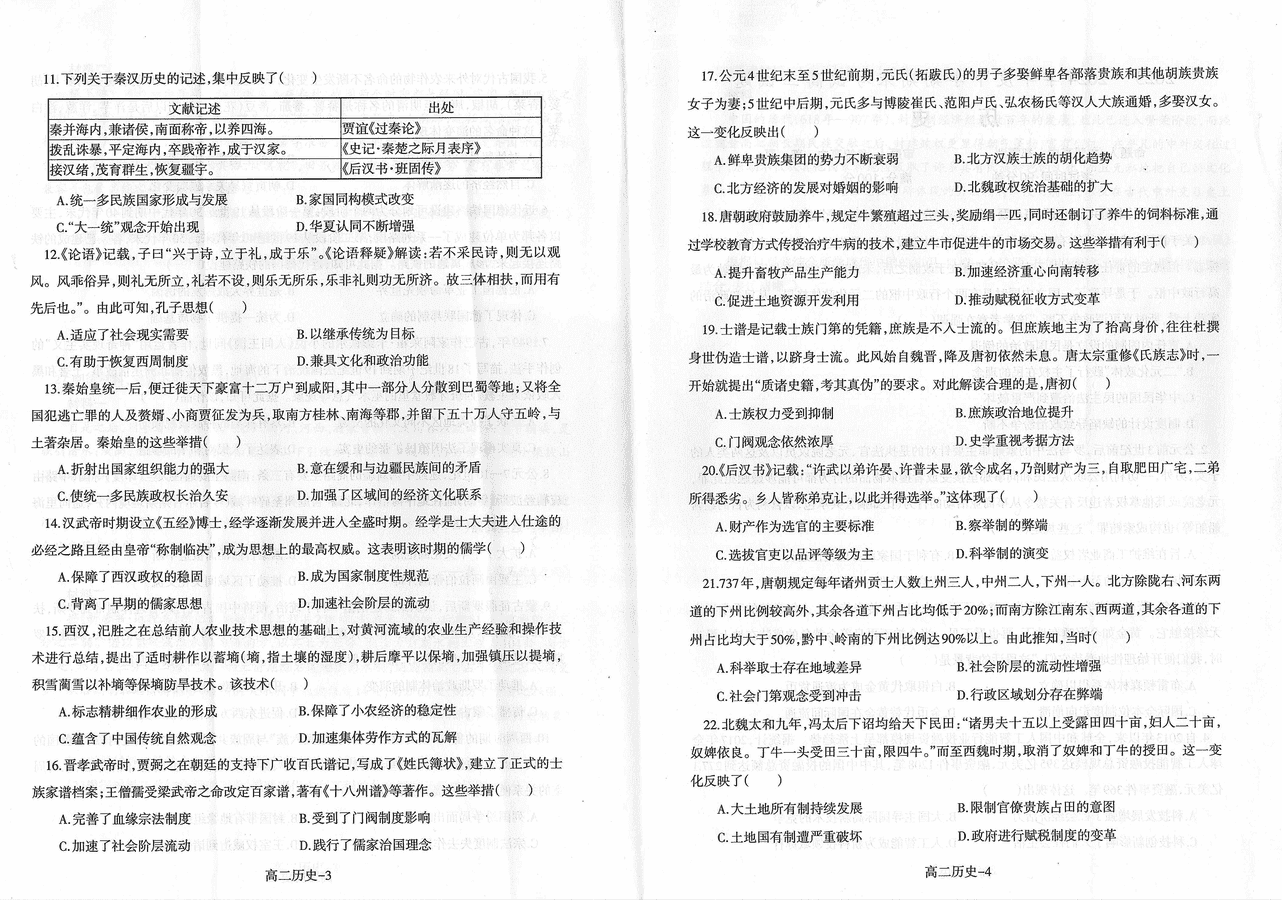 11.下列关于秦汉历史的记述,集中反映了(　　)
文献记述　出处
秦并海内,兼诸侯,南面称帝,以养四海。　贾谊《过秦论》
拨乱诛暴,平定海内,卒践帝祚,成于汉家。　《史记·秦楚之际月表序》
接汉绪,茂育群生,恢复疆宇。　《后汉书·班固传》
A.统一多民族国家形成与发展　B.家国同构模式改变
C.“大一统”观念开始出现　D.华夏认同不断增强
12.《论语》记载,子曰“兴于诗,立于礼,成于乐”。《论语释疑》解读:若不采民诗,则无以观
风。风乖俗异,则礼无所立,礼若不设,则乐无所乐,乐非礼则功无所济。故三体相扶,而用有
先后也。”。由此可知,孔子思想(　　)
A.适应了社会现实需要　B.以继承传统为目标
C.有助于恢复西周制度　D.兼具文化和政治功能
13.秦始皇统一后,便迁徙天下豪富十二万户到咸阳,其中一部分人分散到巴蜀等地;又将全
国犯逃亡罪的人及赘婿、小商贾征发为兵,取南方桂林、南海等郡,并留下五十万人守五岭,与
土著杂居。秦始皇的这些举措(　　)
A.折射出国家组织能力的强大　B.意在缓和与边疆民族间的矛盾
C.使统一多民族政权长治久安　D.加强了区域间的经济文化联系
14.汉武帝时期设立《五经》博士,经学逐渐发展并进入全盛时期。经学是士大夫进入仕途的
必经之路且经由皇帝“称制临决”,成为思想上的最高权威。这表明该时期的儒学(　　)
A.保障了西汉政权的稳固　B.成为国家制度性规范
C.背离了早期的儒家思想　D.加速社会阶层的流动
15.西汉,氾胜之在总结前人农业技术思想的基础上,对黄河流域的农业生产经验和操作技
术进行总结,提出了适时耕作以蓄墒(墒,指土壤的湿度),耕后摩平以保墒,加强镇压以提墒,
积雪蔺雪以补墒等保墒防旱技术。该技术(　　)
A.标志精耕细作农业的形成　B.保障了小农经济的稳定性
C.蕴含了中国传统自然观念　D.加速集体劳作方式的瓦解
16.晋孝武帝时,贾弼之在朝廷的支持下广收百氏谱记,写成了《姓氏簿状》,建立了正式的士
族家谱档案;王僧孺受梁武帝之命改定百家谱,著有《十八州谱》等著作。这些举措(　　)
A.完善了血缘宗法制度　B.受到了门阀制度影响
C.加速了社会阶层流动　D.践行了儒家治国理念
高二历史-3
17.公元4世纪末至5世纪前期,元氏(拓跋氏)的男子多娶鲜卑各部落贵族和其他胡族贵族
女子为妻;5世纪中后期,元氏多与博陵崔氏、范阳卢氏、弘农杨氏等汉人大族通婚,多娶汉女。
这一变化反映出(　　)
A.鲜卑贵族集团的势力不断衰弱　B.北方汉族士族的胡化趋势
C.北方经济的发展对婚姻的影响　D.北魏政权统治基础的扩大
18.唐朝政府鼓励养牛,规定牛繁殖超过三头,奖励绢一匹,同时还制订了养牛的饲料标准,通
过学校教育方式传授治疗牛病的技术,建立牛市促进牛的市场交易。这些举措有利于(　　)
A.提升畜牧产品生产能力　B.加速经济重心向南转移
C.促进土地资源开发利用　D.推动赋税征收方式变革
19.士谱是记载士族门第的凭籍,庶族是不入士流的。但庶族地主为了抬高身价,往往杜撰
身世伪造士谱,以跻身士流。此风始自魏晋,降及唐初依然未息。唐太宗重修《氏族志》时,一
开始就提出“质诸史籍,考其真伪”的要求。对此解读合理的是,唐初(　　)
A.士族权力受到抑制　B.庶族政治地位提升
C.门阀观念依然浓厚　D.史学重视考据方法
20.《后汉书》记载:“许武以弟许晏、许普未显,欲令成名,乃剖财产为三,自取肥田广宅,二弟
所得悉劣。乡人皆称弟克让,以此并得选举。”这体现了(　　)
A.财产作为选官的主要标准　B.察举制的弊端
C.选拔官吏以品评等级为主　D.科举制的演变
21.737年,唐朝规定每年诸州贡士人数上州三人,中州二人,下州一人。北方除陇右、河东两
道的下州比例较高外,其余各道下州占比均低于20%;而南方除江南东、西两道,其余各道的下
州占比均大于50%,黔中、岭南的下州比例达90%以上。由此推知,当时(　　)
A.科举取士存在地域差异　B.社会阶层的流动性增强
C.社会门第观念受到冲击　D.行政区域划分存在弊端
22.北魏太和九年,冯太后下诏均给天下民田:“诸男夫十五以上受露田四十亩,妇人二十亩,
奴婢依良。丁牛一头受田三十亩,限四牛。”而至西魏时期,取消了奴婢和丁牛的授田。这一变
化反映了(　　)
A.大土地所有制持续发展　B.限制官僚贵族占田的意图
C.土地国有制遭严重破坏　D.政府进行赋税制度的变革
高二历史-4